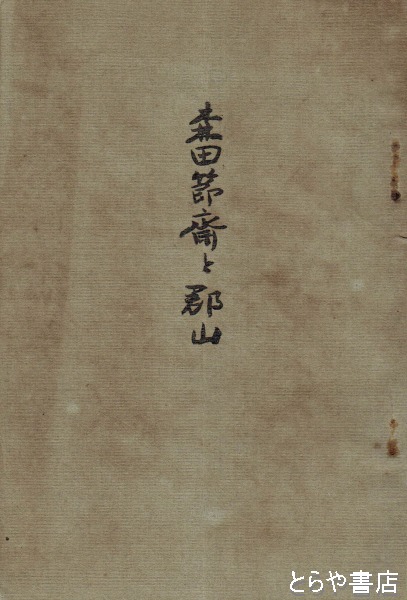 森田節齋と郡山
とらや書店